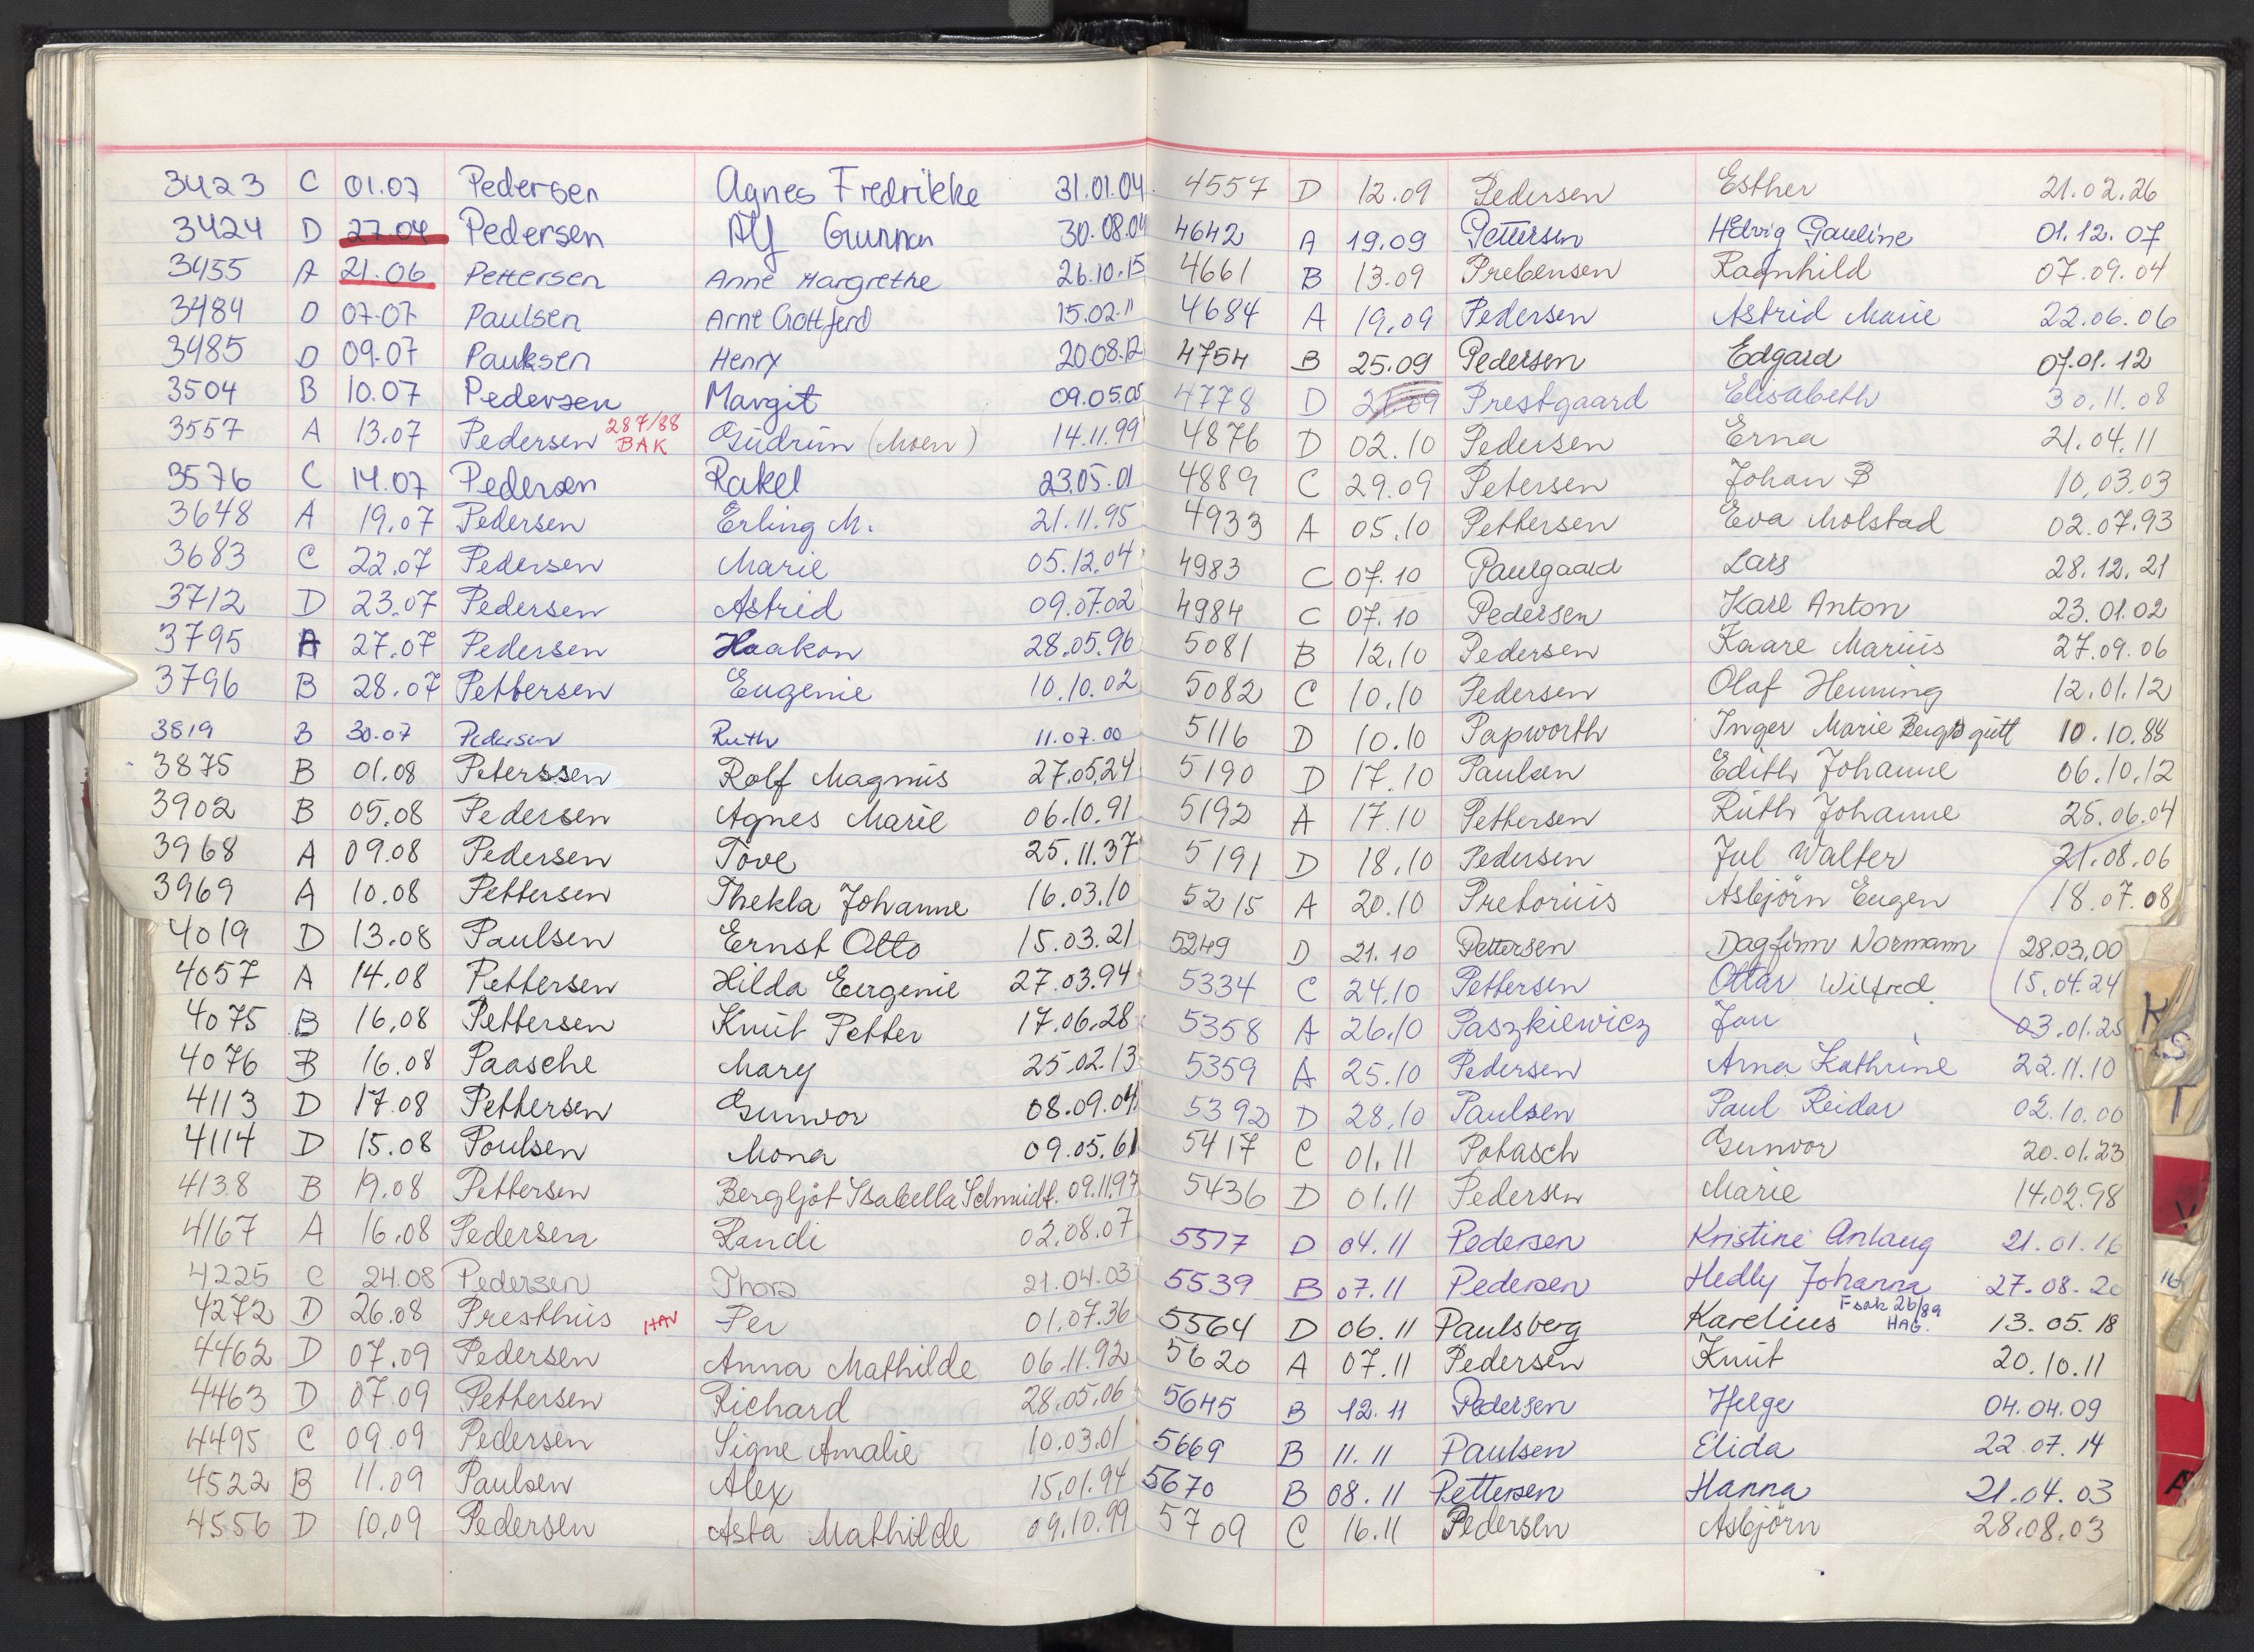 3423 C 01.07 Pedersen Agnes Fredrikke 31.01.04
3424 D 27.04 Pedersen Alf Gunnar 30.08.04
3455 A 21.06 Pettersen Anne Margrethe 26.10.15
3484 D 07.07 Paulsen Arne Gottferd 15.02.11
3485 D 09.07 Paulsen Henry 20.08.12
3504 B 10.07 Pedersen Margit 09.05.05
3557 A 13.07 Pedersen 287/88 BAK Gudrun (Moen) 14.11.99
3576 C 14.07 Pedersen Rakel 23.05.01
3648 A 19.07 Pedersen Erling M. 21.11.95
3683 C 22.07 Pedersen Marie 05.12.04
3712 D 23.07 Pedersen Astrid 09.07.02
3795 A 27.07 Pedersen Haakon 28.05.96
3796 B 28.07 Pettersen Eugenie 10.10.02
3819 B 30.07 Pedersen Ruth 11.07.00
3875 B 01.08 Peterssen Rolf Magnus 27.05.24
3902 B 05.08 Pedersen Agnes Marie 06.10.91
3968 A 09.08 Pedersen Tove 25.11.37
3969 A 10.08 Pettersen Thekla Johanne 16.03.10
4019 D 13.08 Paulsen Ernst Otto 15.03.21
4057 A 14.08 Pettersen Hilda Eugenie 27.03.94
4075 B 16.08 Pettersen Knut Petter 17.06.28
4076 B 16.08 Paasche Mary 25.02.13
4113 D 17.08 Pettersen Gunvor 08.09.04
4114 D 15.08 Poulsen Mona 09.05.61
4138 B 19.08 Pettersen Bergljót Isabella Schmidt. 09.11.97
4167 A 16.08 Pedersen Randi 02.08.07
4225 C 24.08 Pedersen Thora 21.04.03
4272 D 26.08 Presthus HAV Per 01.07.36
4462 D 07.09 Pedersen Anna Mathilde 06.11.92
4463 D 07.09 Pettersen Richard 28.05.06
4495 C 09.09 Pedersen Signe Amalie 10.03.01
4522 B 11.09 Paulsen Alex 15.01.94
4556 D 10.09 Pedersen Asta Mathilde 09.10.99
4557 D 12.09 Pedersen Esther 21.02.26
4642 A 19.09 Pettersen Helvig Pauline 01.12.07
4661 B 13.09 Prebensen Ragnhild 07.09.04
4684 A 19.09 Pedersen Astrid Marie 22.06.06
4754 B 25.09 Pedersen Edgard 07.01.12
4778 D Prestgaard Elisabeth 30.11.08
4876 D 02.10 Pedersen Erna 21.04.11
4889 C 29.09 Petersen Johan B 10.03.03
4933 A 05.10 Pettersen Eva Molstad 02.07.93
4983 C 07.10 Paulgaard Lars 28.12.21
4984 C 07.10 Pedersen Karl Anton 23.01.02
5081 B 12.10 Pedersen Kaare Marius 27.09.06
5082 C 10.10 Pedersen Olaf Henning 12.01.12
5116 D 10.10 Papworth Inger Marie 10.10.88
5190 D 17.10 Paulsen Edith Johanne 06.10.12
5192 A 17.10 Pettersen Ruth Johanne 25.06.04
5191 D 18.10 Pedersen Jul Walter 21.08.06
5215 A 20.10 Pretorius Asbjörn Eugen 18.07.08
5249 D 21.10 Pettersen Dagfinn Normann 28.03.00
5334 C 24.10 Pettersen Ottar Wilfred 15.04.24
5358 A 26.10 Paszkiewicz Jan 03.01.25
5359 A 25.10 Pedersen Arna Kathrine 22.11.10
5392 D 28.10 Paulsen Paul Reidar 02.10.00
5417 C 01.11 Potasch Gunvor 20.01.23
5436 D 01.11 Pedersen Marie 14.02.98
5517 D 04.11 Pedersen Kristine Anlaug 21.01.16
5539 B 07.11 Pedersen Hedly Johanna 27.08.20
5564 D 06.11 Paulsberg Karelius Fsak 26/89 HAG. 13.05.18
5620 A 07.11 Pedersen Knut 20.10.11
5645 B 12.11 Pedersen Helge 04.04.09
5669 B 11.11 Paulsen Elida 22.07.14
5670 B 08.11 Pettersen Hanna 21.04.03
5709 C 16.11 Pedersen Asbjörn 28.08.03
K
S
T
V
16